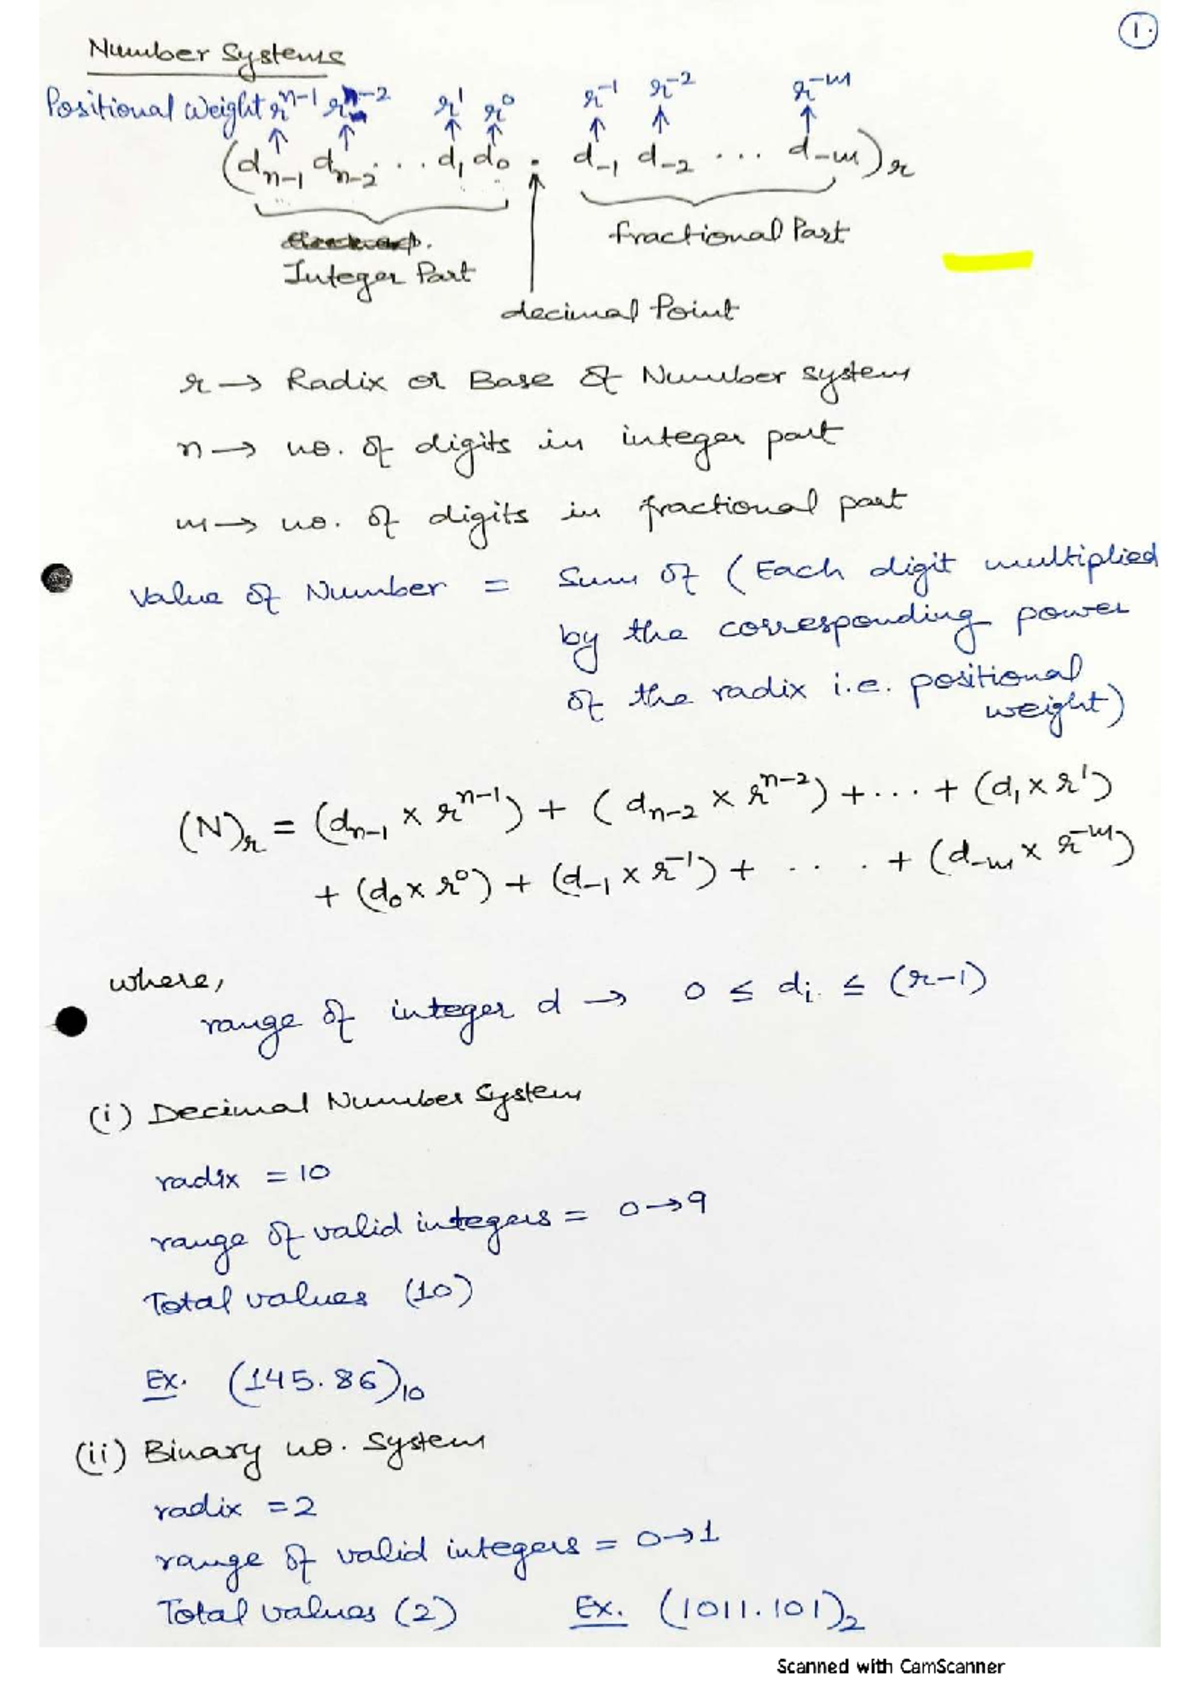 1.
Number Systems
Positional Weight r^n-1 r^n-2 r^1 r^0 r^-1 r^-2 r^-m
(d_n-1 d_n-2 ... d_1 d_0 . d_-1 d_-2 ... d_-m)_r
Integer Part
fractional Part
decimal Point
r → Radix or Base of Number system
n → no. of digits in integer part
m → no. of digits in fractional part
Value of Number = Sum of (Each digit multiplied
by the corresponding power
of the radix i.e. positional
weight)
(N)_r = (d_n-1 × r^n-1) + (d_n-2 × r^n-2) + ... + (d_1 × r^1)
+ (d_0 × r^0) + (d_-1 × r^-1) + .... + (d_-m × r^-m)
where,
range of integer d → 0 ≤ d_i ≤ (r-1)
(i) Decimal Number System
radix = 10
range of valid integers = 0→9
Total values (10)
Ex. (145.86)_10
(ii) Binary no. System
radix = 2
range of valid integers = 0→1
Total values (2) Ex. (1011.101)_2
Scanned with CamScanner